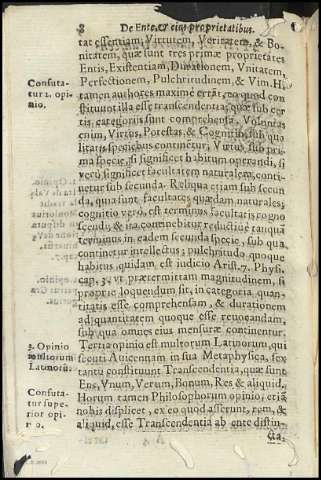 8 De Ente, & eius proprietatibus.
tat essentiam, Virtutem, Veritatem, & Bo-
nitatem, quæ sunt tres primæ proprietates
Entis, Existentiam, Durationem, Vnitatem,
Perfectionem, Pulchritudinem, & Vim. Hi
tamen authores maximè errāt, eo quod con-
stituūt illa esse transcendentia, quæ sub cer-
tis categorijs sunt comprehensa. Voluntas
enim, Virtus, Potestas, & Cognitio, sub qua
litatis speciebus continētur; Virtus, sub pri-
ma specie, si significet habitum operandi, si
verò significet facultatem naturalem, conti-
netur sub secunda. Reliqua etiam sub secun
da, quia sunt facultates quædam naturales;
cognitio verò, est terminus facultatis cogno
scendi, & ita continebitur reductiuè tanquā
terminus in eadem secunda specie, sub qua
continetur intellectus; pulchritudo quoque
habitus, quidam est iudicio Arist. 7. Physi.
cap. 3. vt prætermittam magnitudinem, si
propriè loquendum sit, in categoria, quan-
titatis esse comprehensam, & durationem
ad quantitatem quoque esse reuocandam,
sub qua omnes eius mensuræ continentur.
Tertia opinio est multorum Latinorum, qui
secuti Auicennam in sua Metaphysica, sex
tantū constituunt Transcendentia, quæ sunt
Ens, Vnum, Verum, Bonum, Res & aliquid.
Horum tamen Philosophorum opinio, etiā
nobis displicet, ex eo quod asserunt, rem, &
aliquid, esse Transcendentia ab ente distin-
cta.
Confuta-
tur 2. opi
nio.
3. Opinio
multorum
Latinorū.
Confuta-
tur supe-
rior opi
nio.